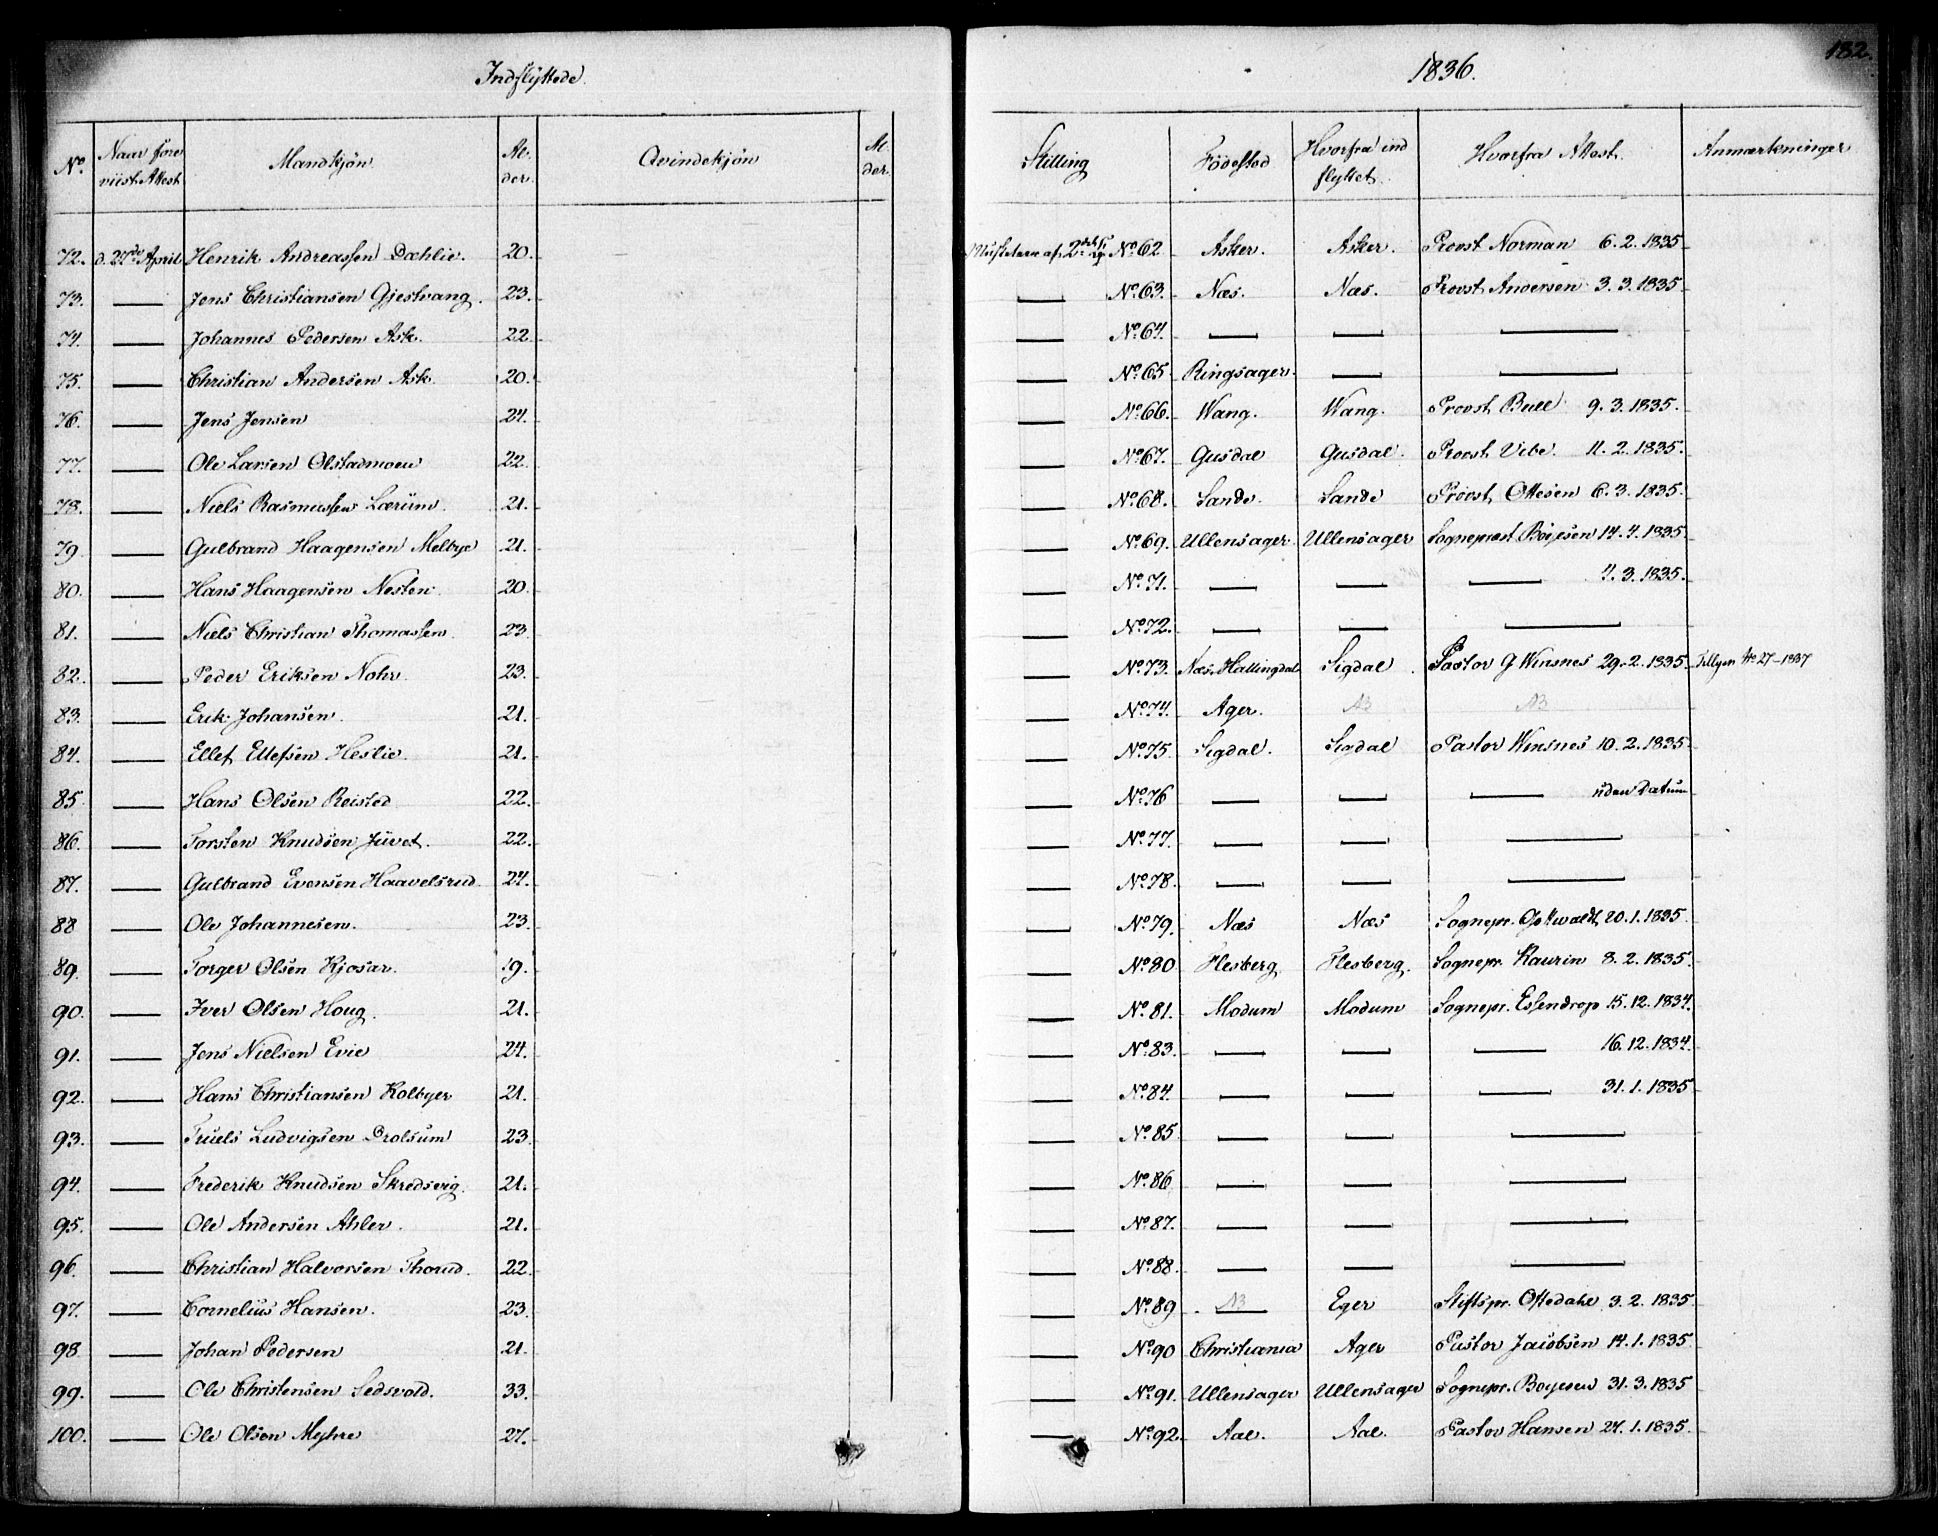 Indflyttede. 1836. 182.
No. Naar fore viist Attest Mandkjøn Al- der. Qvindekjøn Al- der. Stilling Fødested Hvorfra ind flyttet. Hvorfra Attest. Anmærkninger
72. d. 27de April Henrik Andreassen Dæhlie. 20. No. 62 Asker. Asker. Provst Norman 6. 2. 1835
73. — Jens Christiansen Gjestvang. 23. — No. 63. Næs. Næs. Provst Andersen 3. 3. 1835
74. — Johannes Pedersen Ask. 22 — No. 64. — — —
75. — Christian Andersen Ask. 20. — No. 65 Ringsager. — —
76. — Jens Jensen 24. — No. 66. Wang. Wang. Provst Bull 9. 3. 1835.
77. — Ole Larsen Olstadmoen 22. — No. 67. Gusdal Gusdal. Provst Vibe. 11. 2. 1835.
78. — Niels Rasmussen Lærum. 21. — No. 68. Sande. Sande Provst Ottesen 6. 3. 1835.
79 — Gulbrand Haagensen Melbye 21. — No. 69. Ullensager. Ullensager Sogneprest Boyesen 14. 4. 1835.
80. — Hans Haagensen Nesten. 20. — No. 71. — — — 4. 3. 1835.
81. — Niels Christian Thomassen. 23. — No. 72. — — —
82. — Peder Eriksen Nohr. 23. — No. 73. Næs. Hallingdal Sigdal. Pastor G Winsnes 29. 2. 1835. No 27-1837
83. — Erik Johansen. 21. — No. 74. Ager. NB NB
84. — Ellef Ellefsen Heslie. 21. — No. 75. Sigdal. Sigdal Pastor Winsnes 10. 2. 1835.
85. — Hans Olsen Reisted 22. — No. 76 — — — uden Datum
86. — Torsten Knudsen Juvet. 22. — No. 77. — — —
87. — Gulbrand Evensen Haavelsrud. 24. — No. 78. — — —
88 — Ole Johannesen. 23. — No. 79. Næs Næs Sognepr. Gottwaldt 20. 1. 1835.
89. — Torger Olsen Kjosar. 19. — No. 80 Flesberg Flesberg. Sognepr. Kaurin 8. 2. 1835.
90. — Iver Olsen Houg. 21. — No. 81. Modum Modum Sognepr. Essendrop 15. 12. 1834.
91. — Jens Nielsen Evie 24. — No. 83. — — — 16. 12. 1834.
92. — Hans Christiansen Kolbyer 21. — No. 84. — — — 31. 1. 1835
93. — Truels Ludvigsen Drolsum 23. — No. 85. — — —
94. — Frederik Knudsen Skredsvig. 21. — No. 86 — — —
95. — Ole Andersen Ahler. 21. — No. 87. — — —
96. — Christian Halvorsen Thorud. 22. — No. 88. — — —
97. — Cornelius Hansen. 23. — No. 89 NB — Eger Stiftspr. Oftedahl 3. 2. 1835.
98 — Johan Pedersen 21. — No. 90 Christiania Ager Pastor Jacobsen 14. 1. 1835.
99. — Ole Christensen Ledsvold. 33. — No. 91. Ullensager Ullensager Sognepr. Boyesen 31. 3. 1835
100. — Ole Olsen Myhre 27. — No. 92. Aal. Aal. Pastor Hansen 27. 1. 1835.